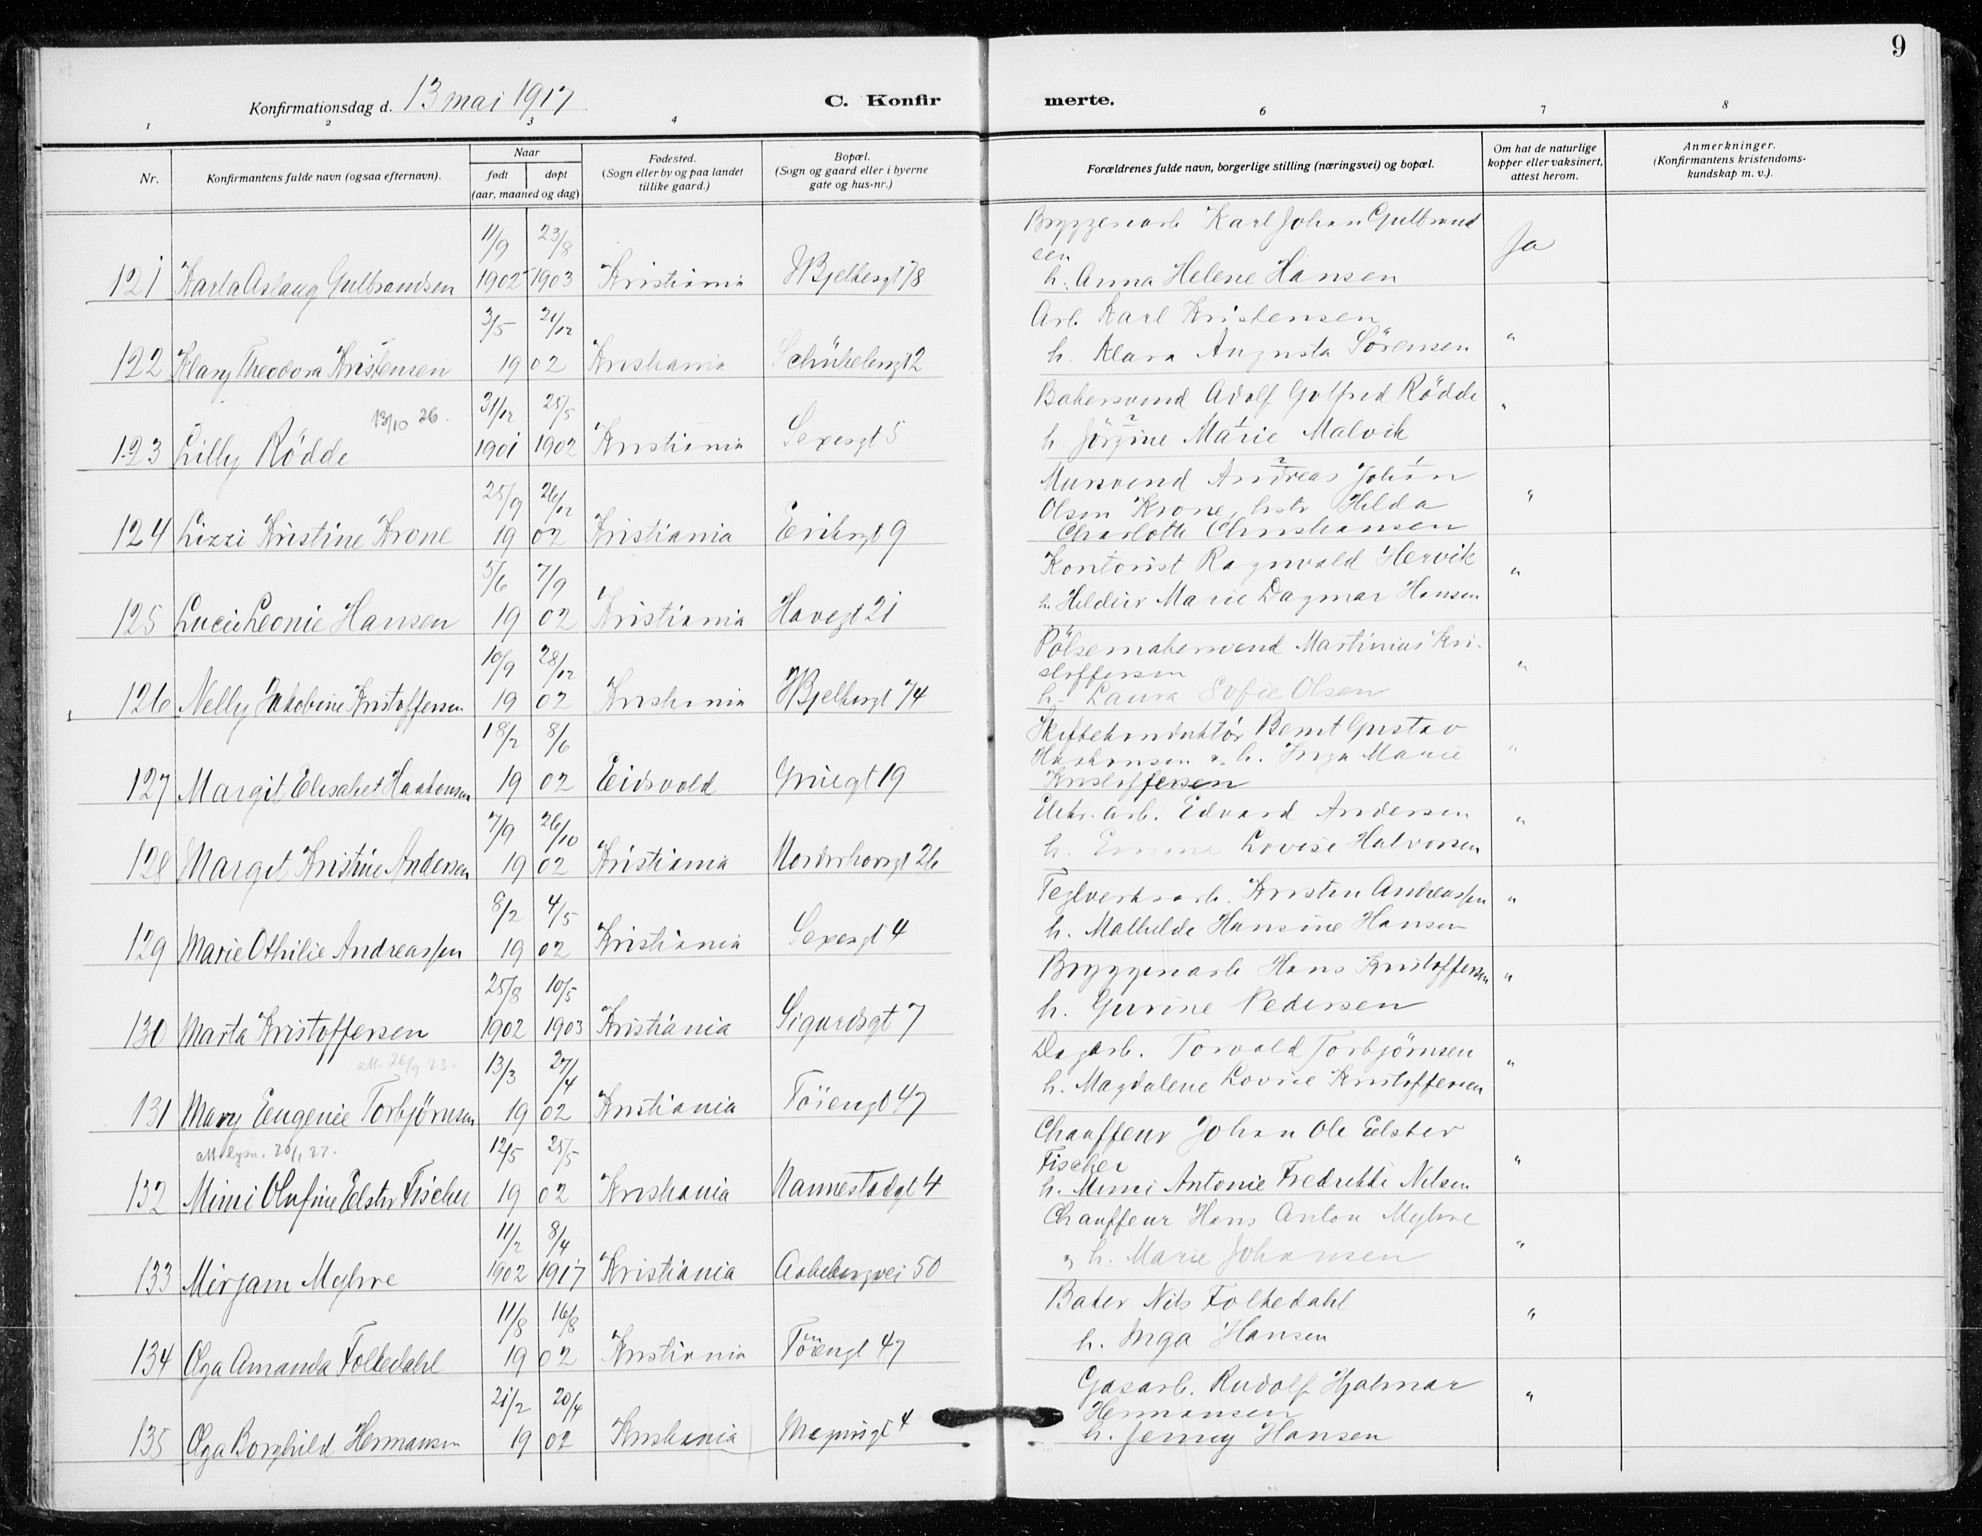 9
Konfirmationsdag d. 13 mai 1917
C. Konfirmerte.
1 2 3 4 6 7 8
Nr.
Konfirmantens fulde navn (ogsaa efternavn).
Naar
født døpt
(aar, maaned og dag)
Fødested.
(Sogn eller by og paa landet
tillike gaard.)
Bopæl.
(Sogn og gaard eller i byerne
gate og hus-nr.)
Forældrenes fulde navn, borgerlige stilling (næringsvei) og bopæl.
Om hat de naturlige
kopper eller vaksinert,
attest herom.
Anmerkninger.
(Konfirmantens kristendoms-
kundskap m. v.).
11/9 23/8 Bryggeriarb Karl Johan Gulbrand
sen Ja
121 Karla Aslaug Gulbrandsen 1902 1903 Kristiania Hjelbergt 78 h. Anna Helene Hansen
3/5 21/12 Arb. Karl Kristensen
122 Klary Theodora Kristensen 19 02 Kristiania Schübelersgt 2 h. Klara Augusta Sörensen "
13/10 26. 31/12 25/5 Bakersvend Adolf Gotfred Rödde "
123 Lilly Rödde 1901 1902 Kristiania Saxesgt 5 h. Jörgine Marie Malvik
25/9 26/12 Mursvend Andreas Johan
Olsen Krone, hstr Hilda "
124 Lizzi Kristine Krone 19 02 Kristiania Eriksgt 9 Charlotte Christiansen
5/6 7/9 Kontorist Ragnvald Hervik "
125 Lucie Leonie Hansen 19 02 Kristiania Havegt 21 Marie Dagmar Hansen
10/9 28/12 Pölsemakersvend Martinius Kri-
stoffersen "
126 Nelly Jakobine Kristoffersen 19 02 Kristiania Hjelbergt 74 h. Laura Sofie Olsen
18/2 8/6 Skiftekonduktör Bernt Gustav
Haakonsen o. h. Inga Marie "
127 Margit Elisabet Haakonsen 19 02 Eidsvold Griegt 19 Kristoffersen
7/9 26/10 Elektr. arb. Edvard Andersen "
128 Margit Kristine Andersen 19 02 Kristiania Norderhovsgt 26 h. Emma Lovise Halvorsen
8/2 4/5 Teglverksarb. Kristen Andreassen "
129 Marie Othilie Andreassen 19 02 Kristiania Saxesgt 4 h. Mathilde Hansine Hansen
25/8 10/5 Bryggeriarb Hans Kristoffersen "
130 Marta Kristoffersen 1902 1903 Kristiania Sigurdsgt 7 h. Gurine Pedersen
att. 26/9 23. 13/3 27/4 Dagarb. Torvald Torbjörnsen "
131 Mary Eugenie Torbjörnsen 19 02 Kristiania Töiengt 47 h. Magdalene Lovise Kristoffersen
att. lysn. 20/1 27. 12/5 25/5 Chauffeur Johan Ole Elster
Fischer "
132 Mimi Olufine Elster Fischer 19 02 Kristiania Nannestadgt 4 h. Mimi Antonie Fredrikke Nilsen
11/2 8/4 Chauffeur Hans Anton Myhre
133 Mirjam Myhre 1902 1917 Kristiania Aakebergvei 50 o. h. Marie Johansen "
11/8 16/8 Baker Nils Folkedahl "
134 Olga Amanda Folkedahl 19 02 Kristiania Töiengt 47 h. Inga Hansen
21/2 20/4 Gasarb. Rudolf Hjalmar
Hermansen "
135 Olga Borghild Hermansen 19 02 Kristiania Magnusgt 4 h. Jenny Hansen